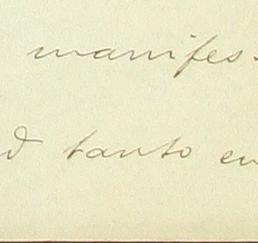 manifes-
tanto en